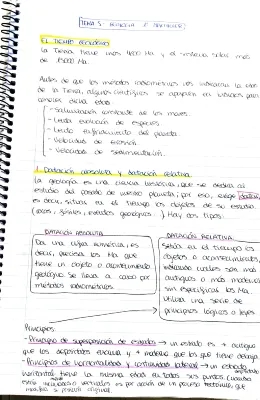 TEMA 5:
EL TIEMPO GEOLÓGICO
La Tierra tiene unos 4600 Ma y el sistema solar más
de 15000 Ma.
Antes de que los métodos radiométricos nos indicaran la edad
de la Tierra, algunos científicos se apoyaban en para
conocer dicha edad
- Salinización constante de los mares.
- Lenta evolución de especies.
- Lento enfriamiento del planeta.
- Velocidad de erosión.
- Velocidad de sedimentación.
1 Datación absoluta y datación relativa
La geología es una ciencia histórica, que se dedica al
estudio del pasado de nuestro planeta; por eso, exige datar,
es decir, situar en el tiempo los objetos de su estudio.
(rocas, fósiles, eventos geológicos...) Hay dos tipos:
DATACIÓN ABSOLUTA
Da una cifra numérica, es
decir, precisa los Ma que
tiene un objeto o acontecimiento
geológico se lleva a cabo por
métodos radiométricos.
DATACIÓN RELATIVA
Sitúa en el tiempo los
objetos o acontecimientos,
indicando cuáles son más
antiguos o más modernos
sin especificar los Ma.
Utiliza una serie de
principios lógicos o leyes
Principios
- Principio de superposición de estratos → un estrato es + antiguo
que los depositados encima y + moderno que los que tiene debajo
- Principio de horizontalidad y continuidad lateral → un estrato
horizontal tiene la misma edad en todos sus puntos (cuando
están inclinados o verticales es por acción de un proceso posterior, que
modifica su posición original